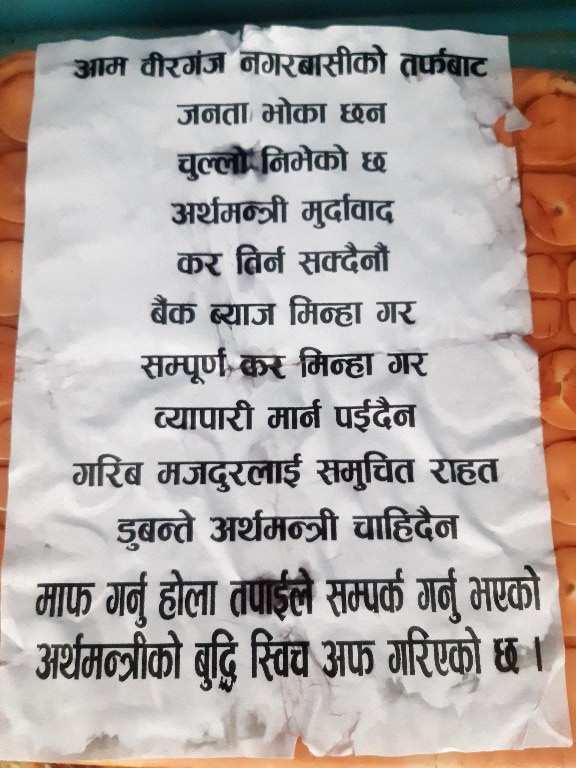 आम वीरगंज नगरबासीको तर्फबाट
जनता भोका छन
चुल्लो निभेको छ
अर्थमन्त्री मुर्दावाद
कर तिर्न सक्दैनौं
बैंक ब्याज मिन्हा गर
सम्पूर्ण कर मिन्हा गर
व्यापारी मार्न पईदैन
गरिब मजदुरलाई समुचित राहत
डुबन्ते अर्थमन्त्री चाहिदैन
माफ गर्नु होला तपाईले सम्पर्क गर्नु भएको
अर्थमन्त्रीको बुद्धि स्विच अफ गरिएको छ ।